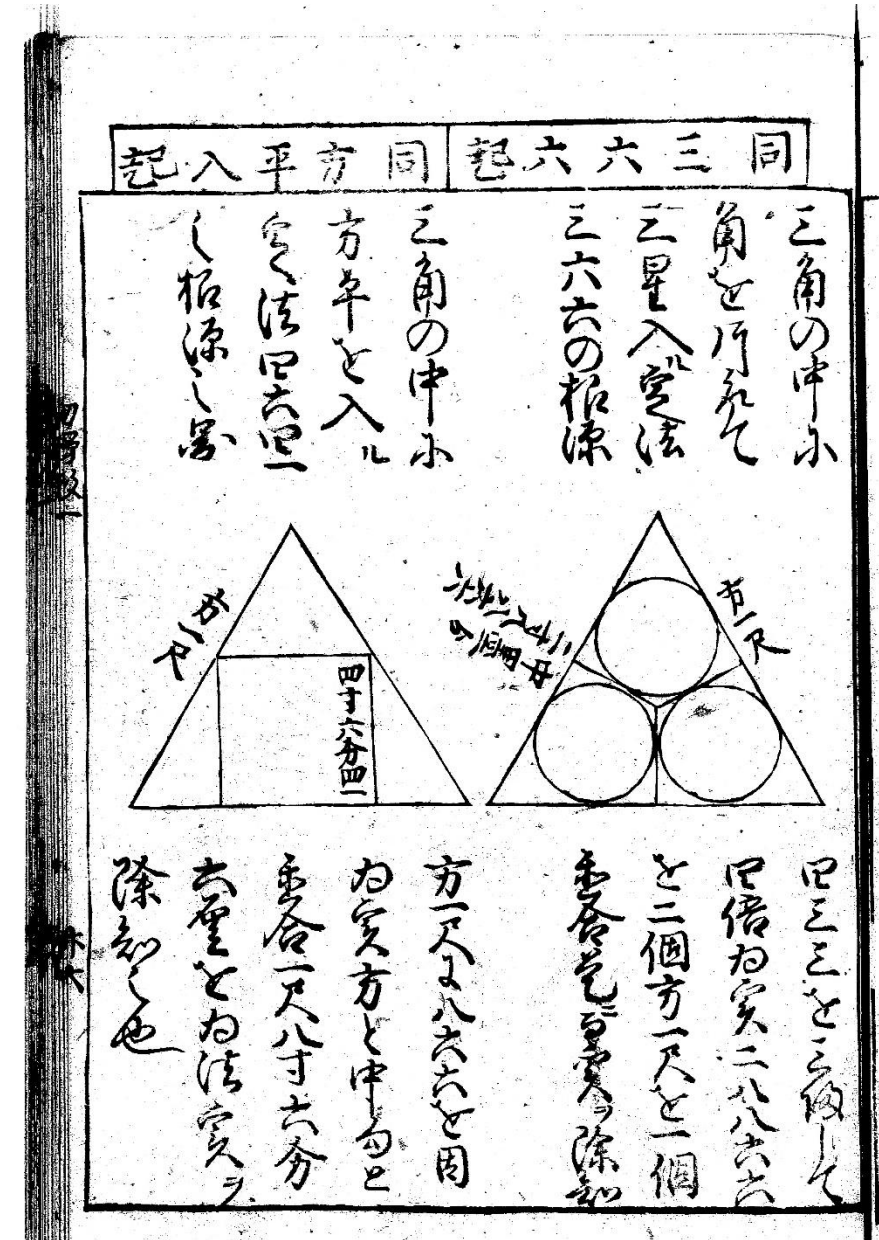 同三六六起
三角の中に
角を
三星入ル定法
三六六の根源
方一尺
四三三を三段して
四倍為実二八八六六
を二個方一尺を一個
重合是ニ而実ヲ除知
同方平入起
三角の中に
方平を入ル
定法四六四一
之根源之
方一尺
四寸六分四一
方一尺に八六六を因
為実方と中勾と
重合一尺八寸六分
六厘を為法実ヲ
除知之也